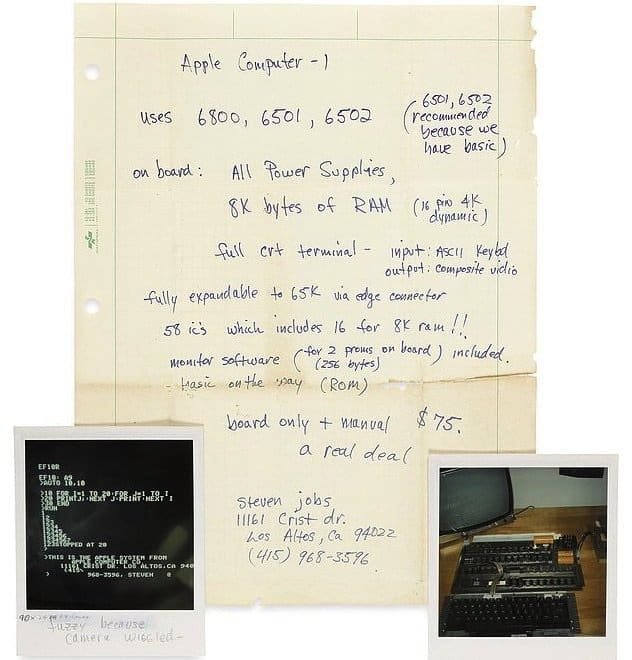 Apple Computer - 1
uses 6800, 6501, 6502
(6501, 6502
recommended
because we
have basic)
on board: All Power Supplies,
8K bytes of RAM (16 pin 4K
dynamic)
full crt terminal - input: ASCII Keybd
output: composite vidio
fully expandable to 65K via edge connector
58 ic's which includes 16 for 8K ram!!
monitor software (for 2 proms on board) included.
(256 bytes)
- basic on the way (ROM)
board only + manual $75.
a real deal
steven jobs
11161 Crist dr.
Los Altos, Ca 94022
(415) 968-3596
EF10R
EF10: A9
>AUTO 10,10
>10 FOR I=1 TO 20:FOR J=1 TO I
>20 PRINTJ;:NEXT J:PRINT:NEXT I
>30 END
>RUN
1
12
123
1234
12345
STOPPED AT 20
>THIS IS THE APPLE SYSTEM FROM
APPLE COMPUTER CO.
11161 CRIST DR. LOS ALTOS,CA 940
(415)
968-3596, STEVEN
fuzzy because
camera wiggled-